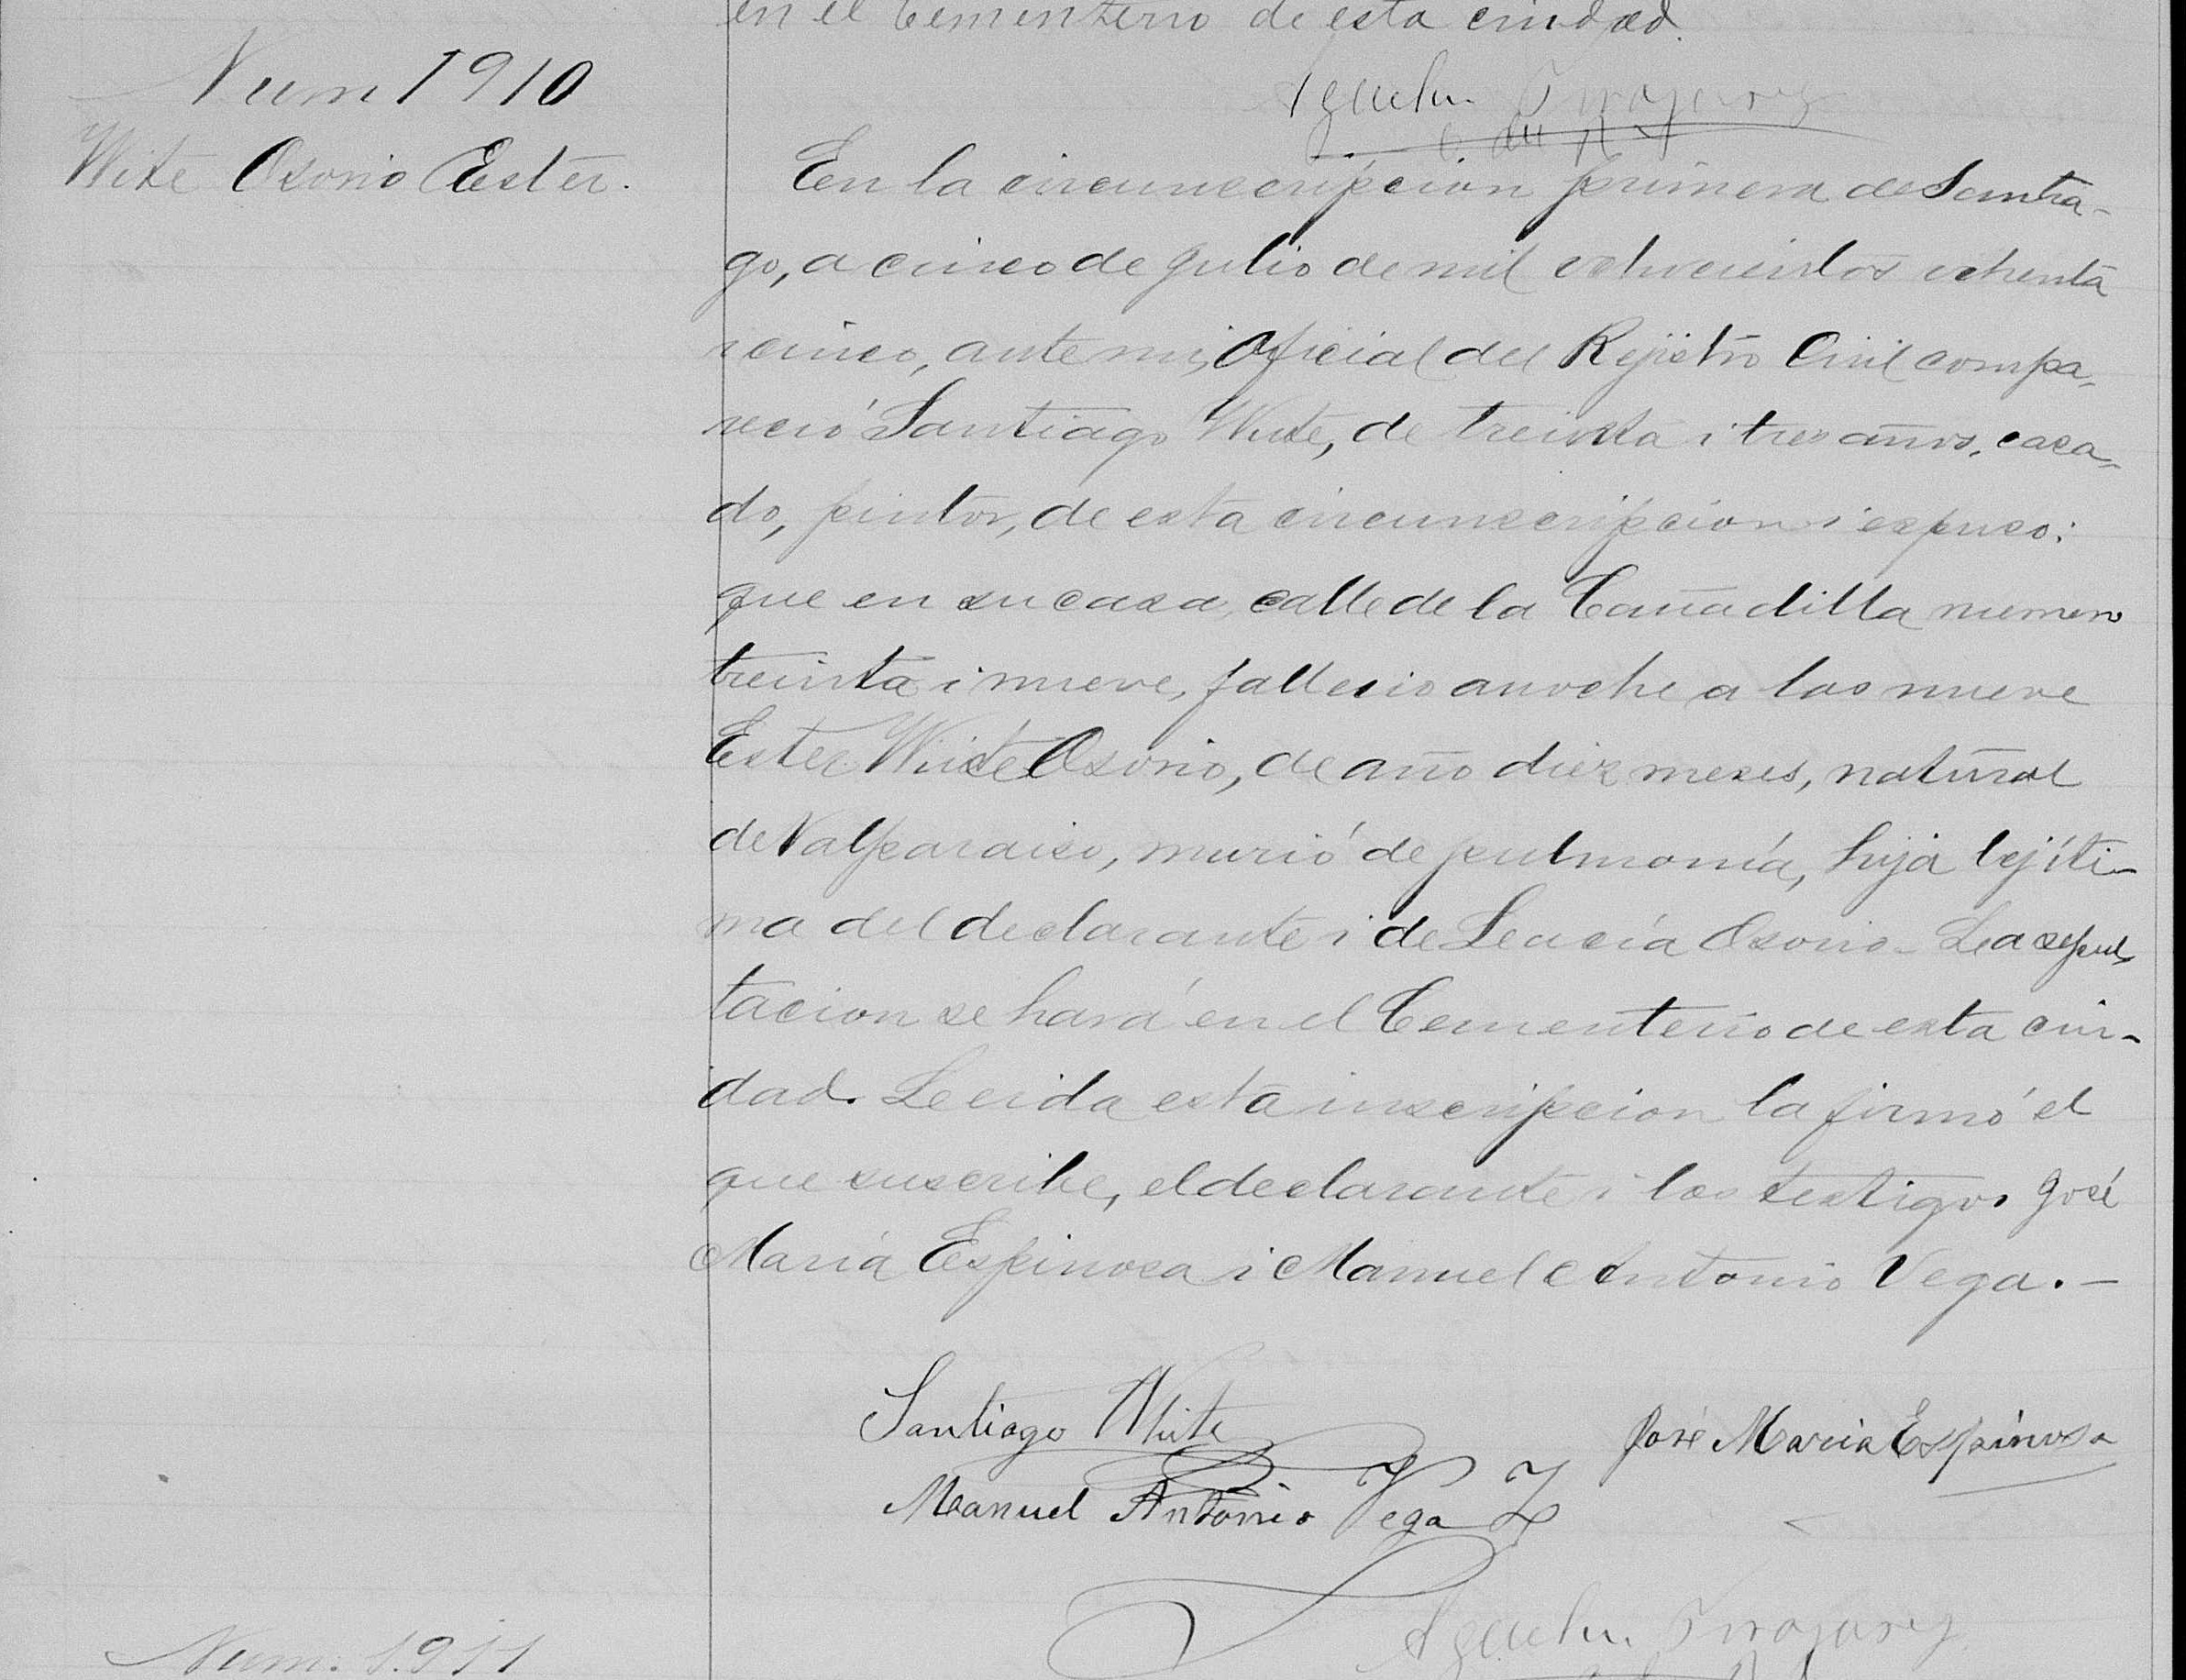 en el Cementerio de esta ciudad.
Num 1910
Wite Osorio Ester.
En la circunscripcion primera de Santia-
go, a cinco de Julio de mil ochocientos ochenta
i cinco, ante mi, Oficial del Rejistro Civil compa-
reció Santiago Wite, de treinta i tres años, casa-
do, pintor, de esta circunscripcion i espuso:
que en su casa, calle de la Cañadilla numero
treinta i nueve, fallecio anoche a las nueve
Ester Wite Osorio, de año diez meses, natural
de Valparaiso, murió de pulmonía, hija lejíti-
ma del declarante i de Lucía Osorio - La sepul-
tacion se hará en el Cementerio de esta ciu-
dad. Leida esta inscripcion la firmó el
que suscribe, el declarante i los testigos José
María Espinosa i Manuel Antonio Vega. -
Santiago White
José Maria Espinosa
Manuel Antonio Vega Z
Num. 1.911